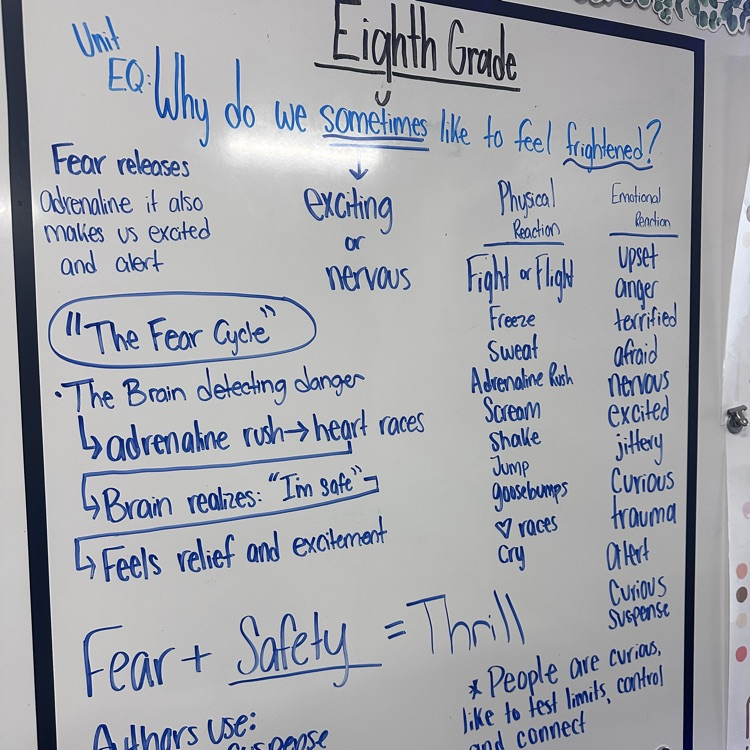 Eighth Grade
Unit
EQ: Why do we sometimes like to feel frightened?
Fear releases
adrenaline it also
makes us excited
and alert
exciting
or
nervous
"The Fear Cycle"
• The Brain detecting danger
↳ adrenaline rush → heart races
↳ Brain realizes: "I'm safe"
↳ Feels relief and excitement
Physical
Reaction
Fight or Flight
Freeze
Sweat
Adrenaline Rush
Scream
Shake
Jump
goosebumps
♡ races
Cry
Emotional
Reaction
upset
anger
terrified
afraid
nervous
excited
jittery
Curious
trauma
alert
Curious
Suspense
Fear + Safety = Thrill
Authors use:
suspense
* People are curious,
like to test limits, control
and connect